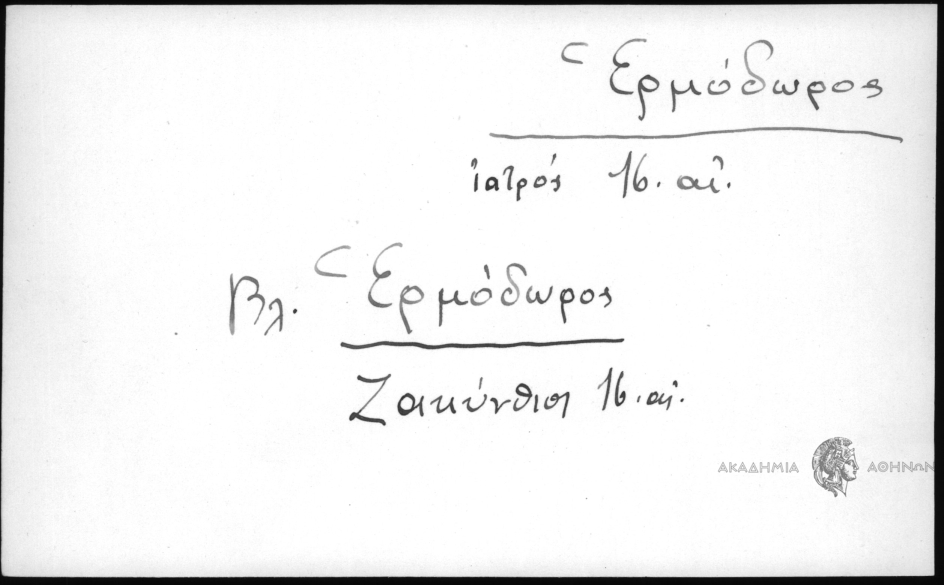 Ἑρμόδωρος
ἰατρός 16. αἰ.
Βλ. Ἑρμόδωρος
Ζακύνθιοι 16. αἰ.
ΑΚΑΔΗΜΙΑ ΑΘΗΝΩΝ